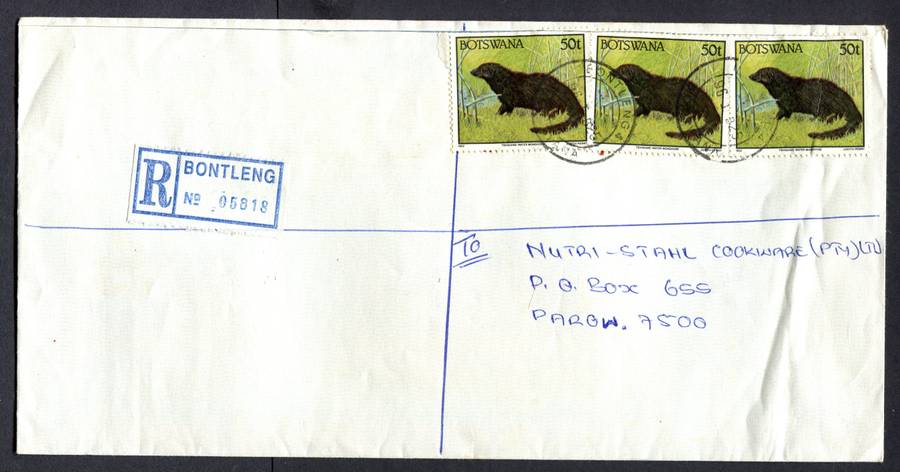 BOTSWANA 50t
BOTSWANA 50t
BOTSWANA 50t
R BONTLENG
Nº 05818
TO
NUTRI-STAHL COOKWARE (PTY) LTD
P. O. BOX 655
PAROW. 7500